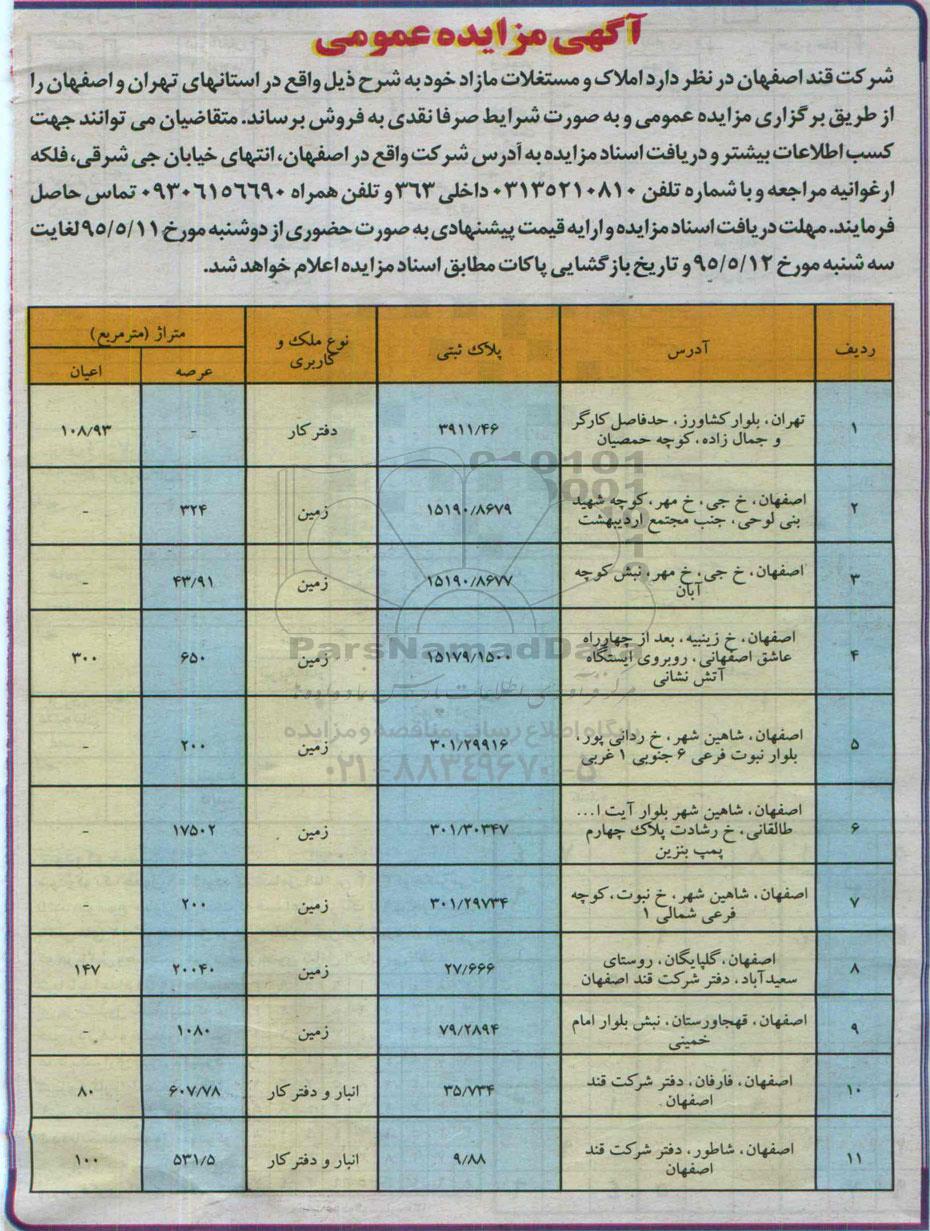 آگهی مزایده عمومی
شرکت قند اصفهان در نظر دارد املاک و مستغلات مازاد خود به شرح ذیل واقع در استانهای تهران و اصفهان را
از طریق برگزاری مزایده عمومی و به صورت شرایط صرفا نقدی به فروش برساند. متقاضیان می توانند جهت
کسب اطلاعات بیشتر و دریافت اسناد مزایده به آدرس شرکت واقع در اصفهان، انتهای خیابان جی شرقی، فلکه
ارغوانیه مراجعه و با شماره تلفن ۰۳۱۳۵۲۱۰۸۱۰ داخلی ۳۶۳ و تلفن همراه ۰۹۳۰۶۱۵۶۶۹۰ تماس حاصل
فرمایند. مهلت دریافت اسناد مزایده و ارایه قیمت پیشنهادی به صورت حضوری از دوشنبه مورخ ۹۵/۵/۱۱ لغایت
سه شنبه مورخ ۹۵/۵/۱۲ و تاریخ بازگشایی پاکات مطابق اسناد مزایده اعلام خواهد شد.
ردیف آدرس پلاک ثبتی نوع ملک و کاربری متراژ (مترمربع)
عرصه اعیان
۱ تهران، بلوار کشاورز، حدفاصل کارگر ۳۹۱۱/۴۶ دفتر کار - ۱۰۸/۹۳
و جمال زاده، کوچه حمصیان
۲ اصفهان، خ جی، خ مهر، کوچه شهید ۱۵۱۹۰/۸۶۷۹ زمین ۳۲۴ -
بنی لوحی، جنب مجتمع اردیبهشت
۳ اصفهان، خ جی، خ مهر، نبش کوچه ۱۵۱۹۰/۸۶۷۷ زمین ۴۳/۹۱ -
آبان
۴ اصفهان، خ زینبیه، بعد از چهارراه ۱۵۱۷۹/۱۵۰۰ زمین ۶۵۰ ۳۰۰
عاشق اصفهانی، روبروی ایستگاه
آتش نشانی
۵ اصفهان، شاهین شهر، خ ردانی پور، ۳۰۱/۲۹۹۱۶ زمین ۲۰۰ -
بلوار نبوت فرعی ۶ جنوبی ۱ غربی
۶ اصفهان، شاهین شهر بلوار آیت ا... ۳۰۱/۳۰۳۴۷ زمین ۱۷۵۰۲ -
طالقانی، خ رشادت پلاک چهارم
پمپ بنزین
۷ اصفهان، شاهین شهر، خ نبوت، کوچه ۳۰۱/۲۹۷۳۴ زمین ۲۰۰ -
فرعی شمالی ۱
۸ اصفهان، گلپایگان، روستای ۲۷/۶۶۶ زمین ۲۰۰۴۰ ۱۴۷
سعیدآباد، دفتر شرکت قند اصفهان
۹ اصفهان، قهجاورستان، نبش بلوار امام ۷۹/۲۸۹۴ زمین ۱۰۸۰ -
خمینی
۱۰ اصفهان، فارفان، دفتر شرکت قند ۳۵/۷۳۴ انبار و دفتر کار ۶۰۷/۷۸ ۸۰
اصفهان
۱۱ اصفهان، شاطور، دفتر شرکت قند ۹/۸۸ انبار و دفتر کار ۵۳۱/۵ ۱۰۰
اصفهان
ParsNamadData
پایگاه اطلاع رسانی مناقصه و مزایده
۰۲۱-۸۸۳۴۹۶۷۰-۵